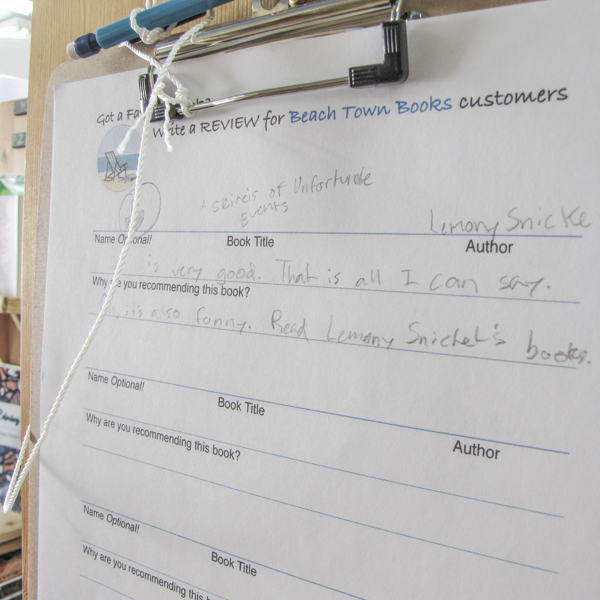 Got a Fa
Write a REVIEW for Beach Town Books customers
A Srineis of Unfortunde
Events
Lemony Snicke
Name Optional!
Book Title
Author
is very good. That is all I can say.
Why are you recommending this book?
it's also funny. Read Lemony Snicket's books.
Name Optional!
Book Title
Author
Why are you recommending this book?
Name Optional!
Book Title
Why are you recommending this book?